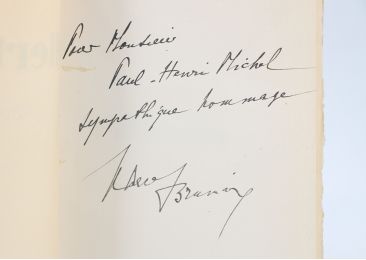 Pour Monsieur
Paul-Henri Michel
sympathique hommage